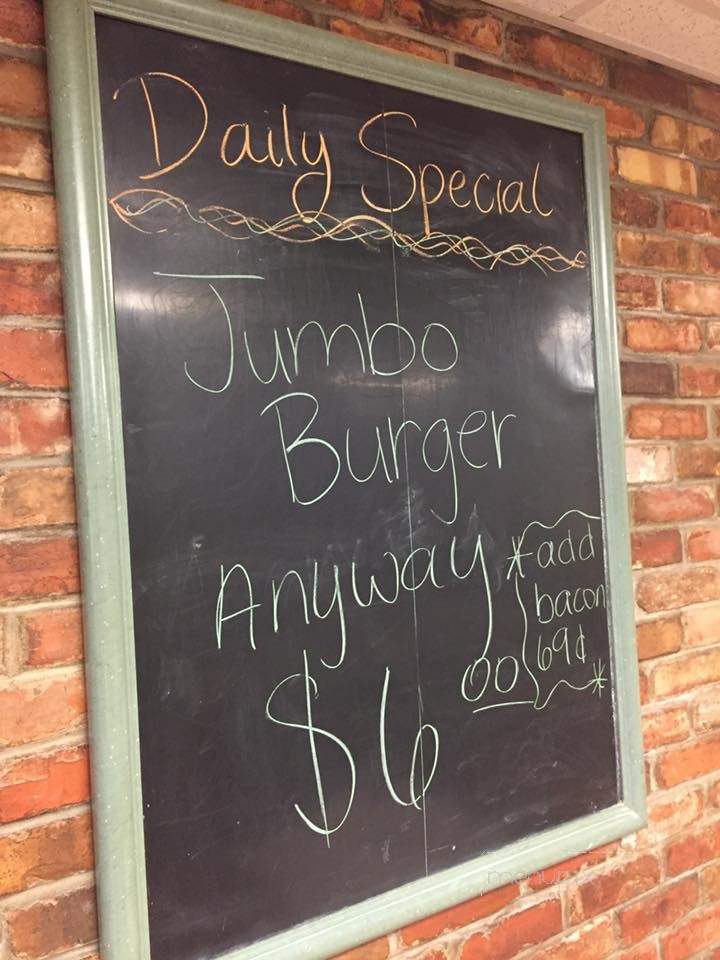 Daily Special
Jumbo
Burger
Anyway
$6 00
*add
bacon
69¢
*